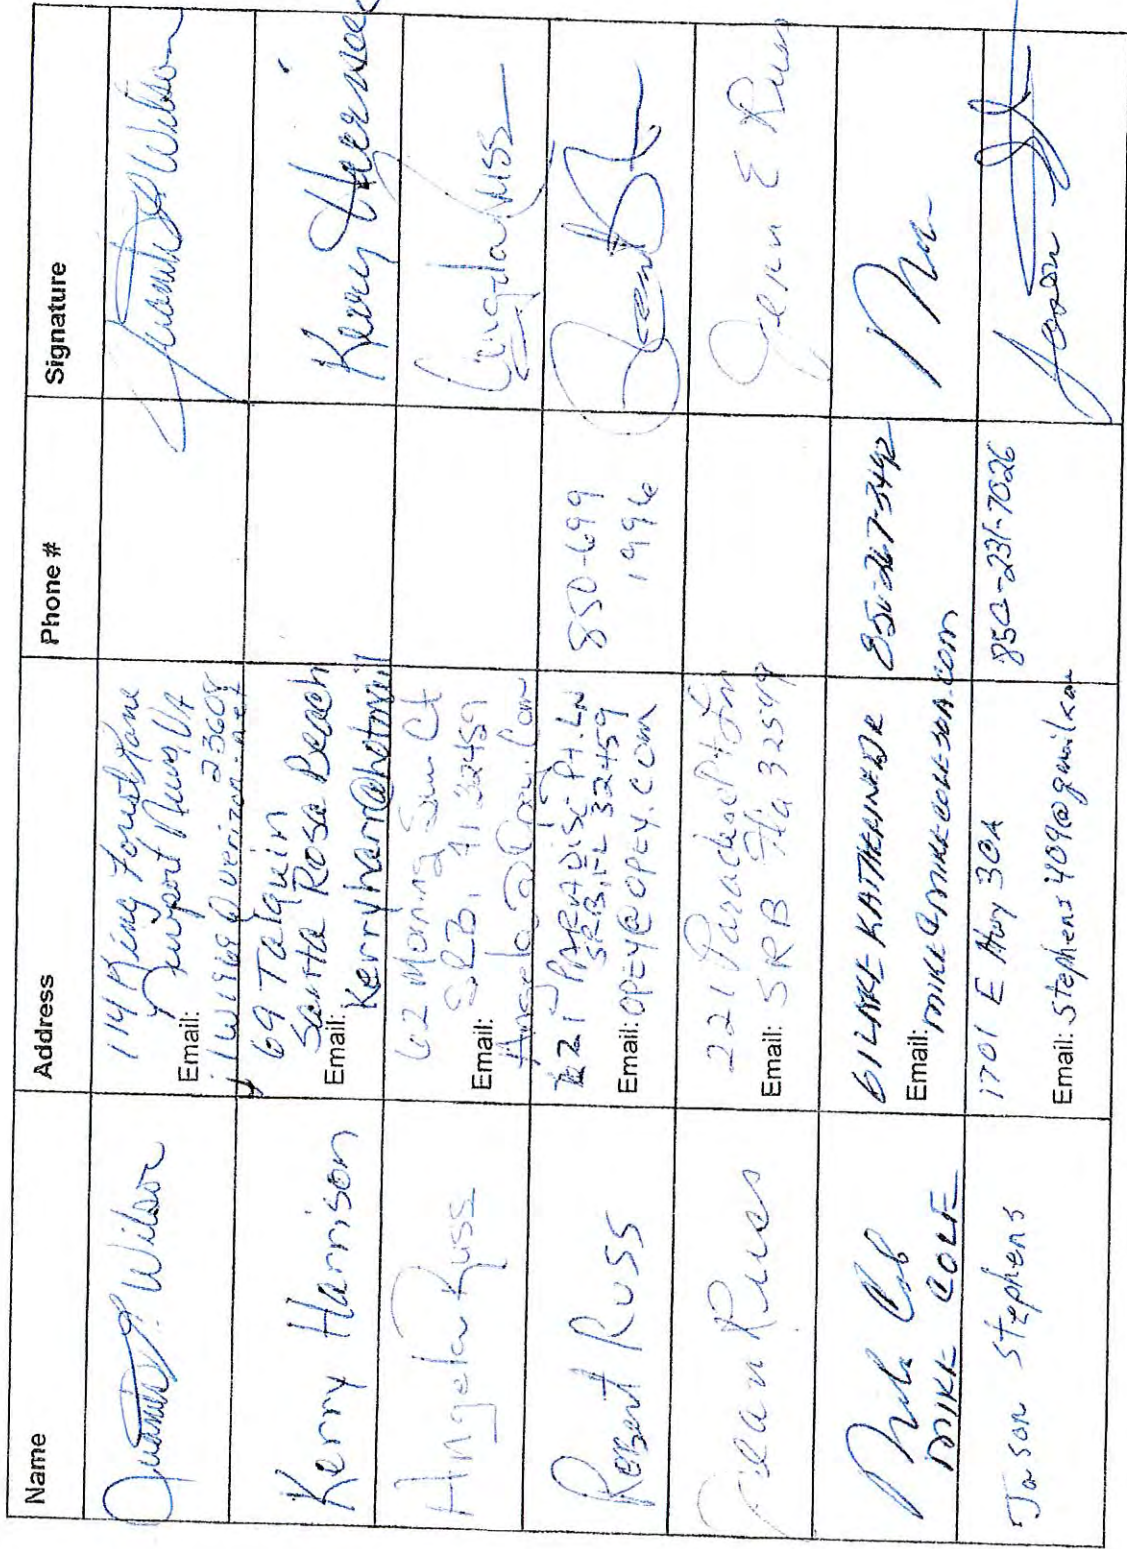 Name Address Phone # Signature
Juanita P. Wilson
114 King Forest Lane
Newport News VA
23608
Email:
jlw1969@verizon.net
Wilson
Kerry Harrison
69 Talquin
Santa Rosa Beach
Email:
Kerryharr@hotmail
Kerry Harrison
Angela Russ
62 Morning Sun Ct
SRB, Fl 32459
Email:
Angela Russ
Robert Russ
221 PARADISE Pt. LN
SRB, FL 32459
Email: OPEY@OPEY.COM
850-699
1996
Jean Russ
221 Paradise Pt Ln
Email: SRB Fla 32549
Jean E Russ
Mike Cole
MIKE COLE
61 LAKE KATHERINE DR
Email: MIKE@MIKECOLESDA.COM
850-267-3492
Jason Stephens
1701 E Hwy 30A
Email: Stephens409@gmail.com
850-231-7026
Jason